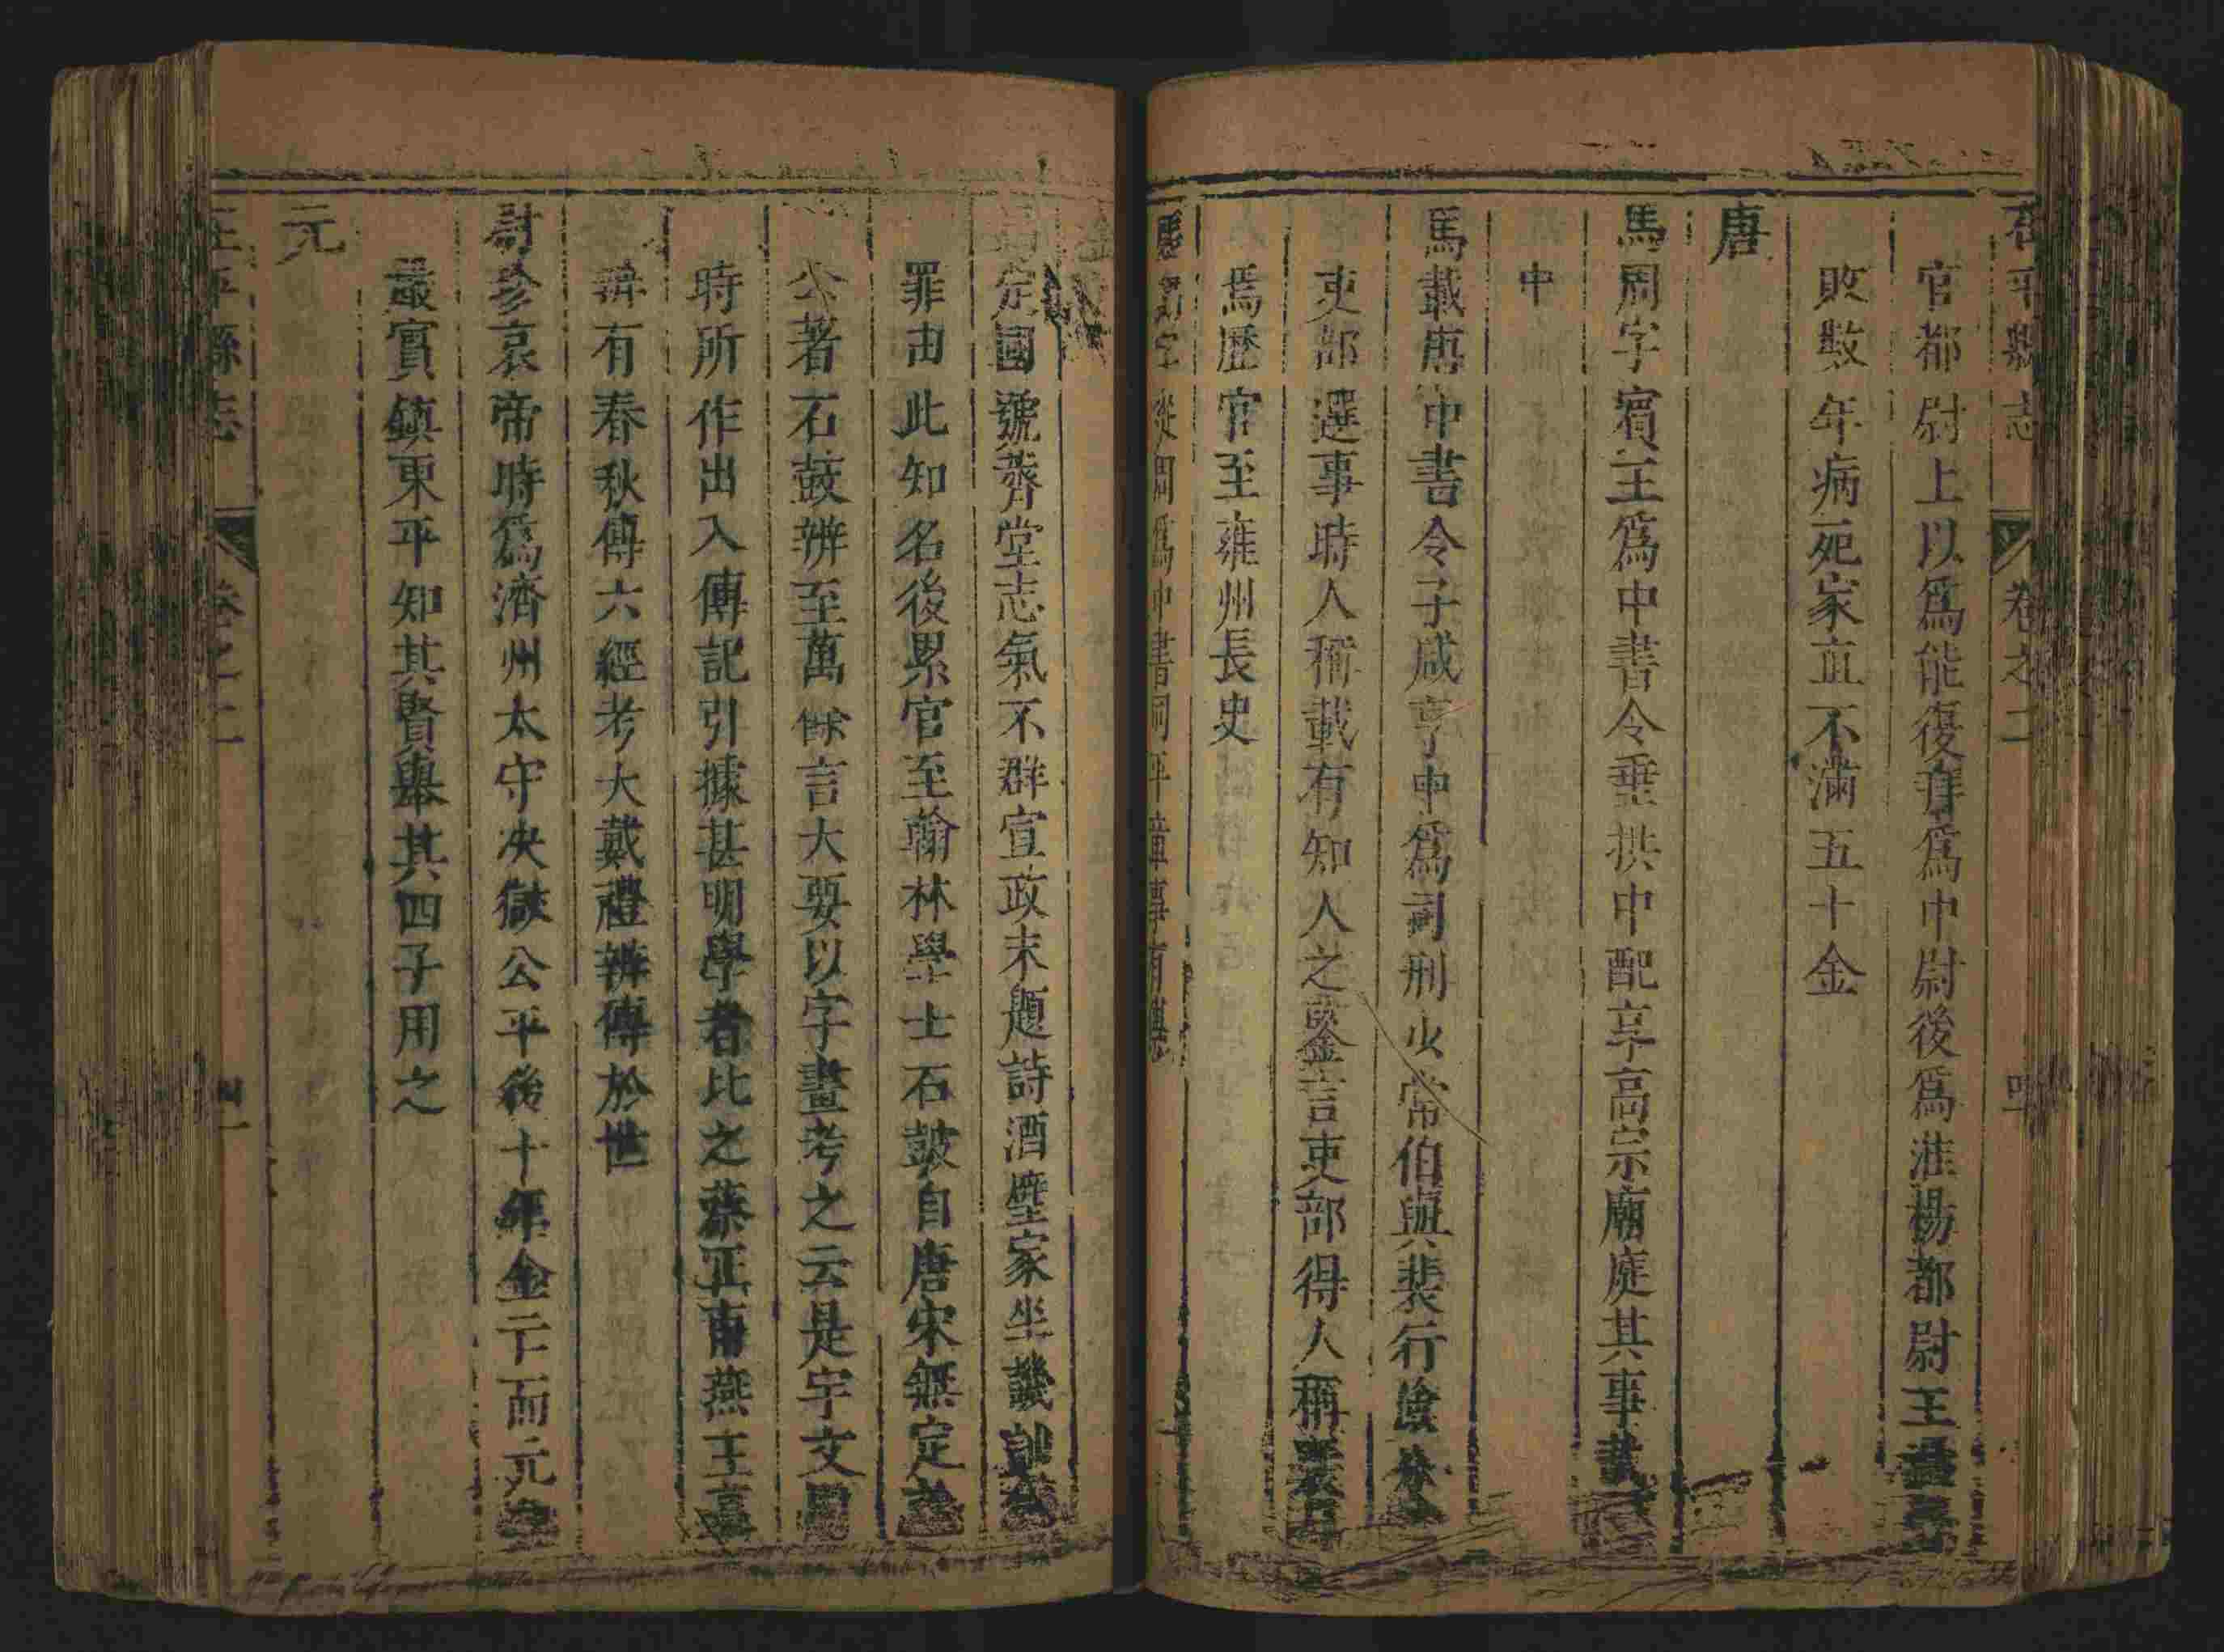 茌平縣志 卷之二
官都尉上以爲能復拜爲中尉後爲淮楊都尉王
敗數年病死家直不滿五十金
唐
馬周字賓王爲中書令垂拱中配享高宗廟庭其事
中
馬載唐中書令子咸亨中爲司刑少常伯與裴行儉分
吏部選事時人稱載有知人之鑒言吏部得人稱裴馬
焉歷官至雍州長史
定國號薺堂志氣不群宣政末題詩酒壁家坐譏訕
罪由此知名後累官至翰林學士石鼓自唐宋無定
公著石鼓辨至萬餘言大要以字畫考之云是宇文周
時所作出入傳記引據甚明學者比之蔡正甫燕王
辨有春秋傳六經考大戴禮辨傳於世
尉珍哀帝時爲濟州太守决獄公平後十年金亡而元
嚴實鎮東平知其賢舉其四子用之
元
茌平縣志 卷之二